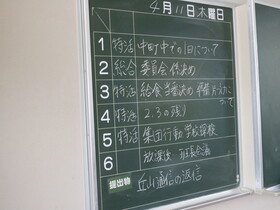 4月11日木曜日
1 特活 中町中での1日について
2 総合 委員会 係決め
3 特活 給食当番決め 学級
ついて
4 特活 2.3の残り
5 特活 集団行動 学校探検
6 放課後 班長会議
提出物 丘山通信の返信